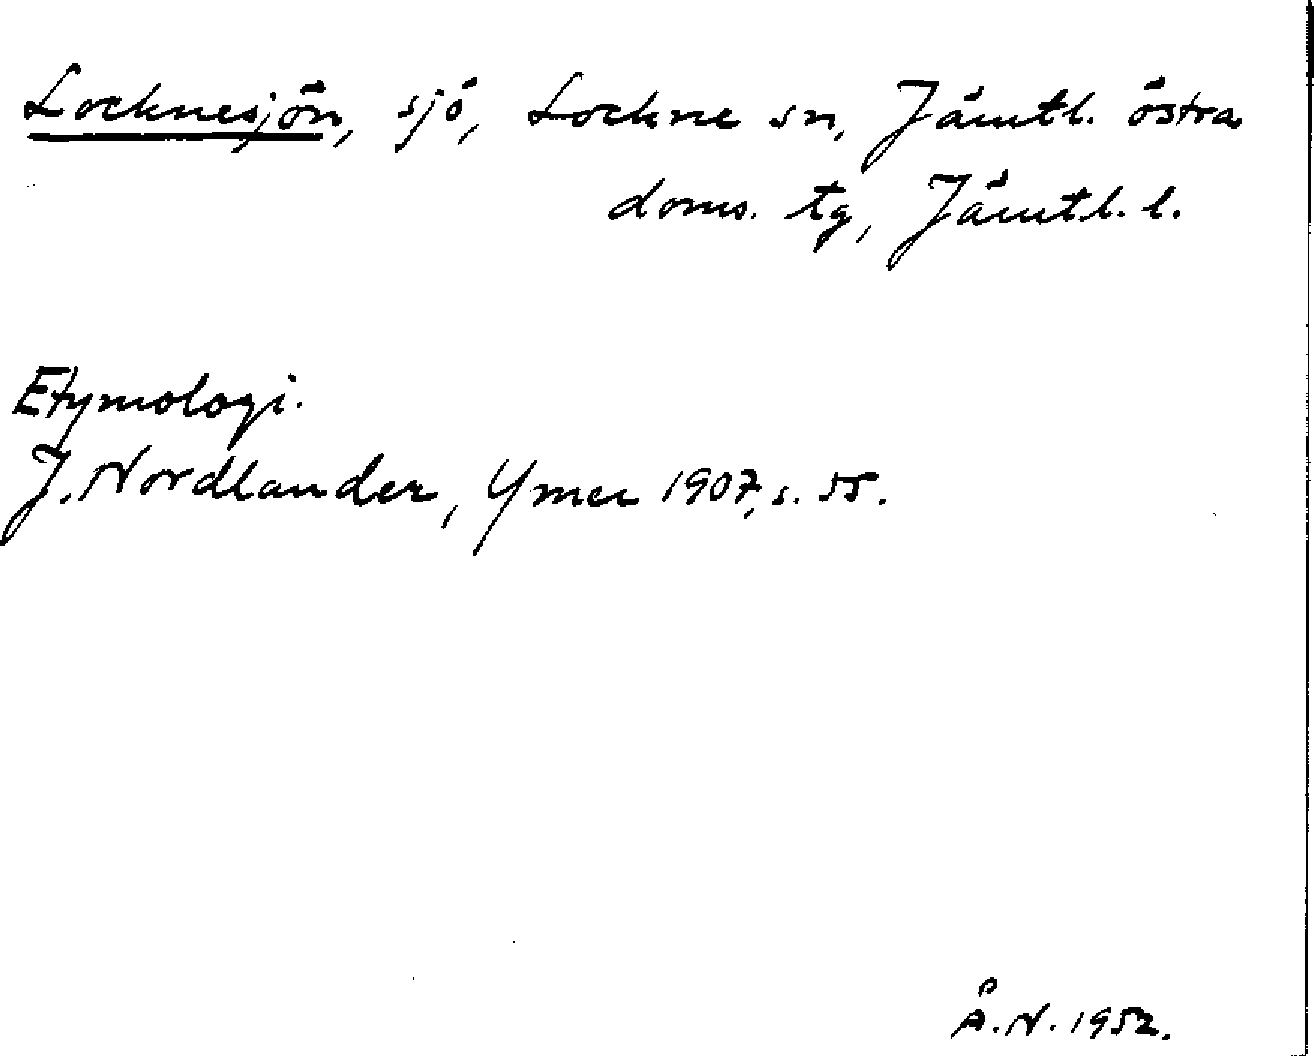 Locknesjön, sjö, Lockne sn, Jämtl. östra
doms. tg, Jämtl. l.
Etymologi.
J. Nordlander, Ymer 1907, s. 55.
Å.N. 1952.